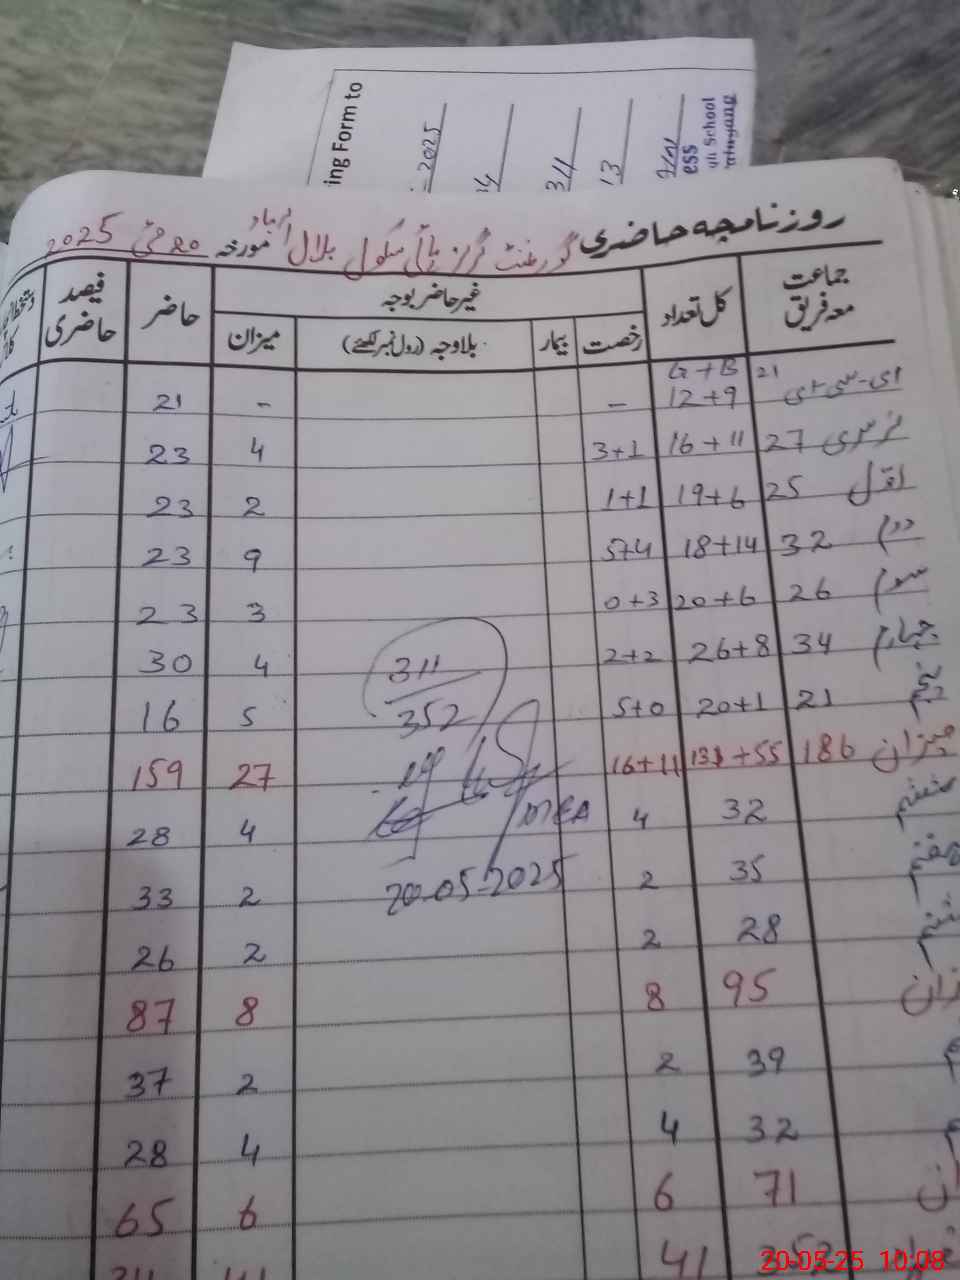 ing Form to
2025
34
13
ess
School
روزنامچہ حاضری گورنمنٹ گرلز ہائی سکول بلال آباد مورخہ 20 مئی 2025
جماعت معہ فریق کل تعداد غیر حاضر بوجہ حاضر فیصد حاضری
رخصت بیمار بلاوجہ (رول نمبر لکھئے) میزان
G+B
ای-سی-ای 21 12+9 - - 21
نرسری 27 16+11 3+1 4 23
اول 25 19+6 1+1 2 23
دوم 32 18+14 5+4 9 23
سوم 26 20+6 0+3 3 23
چہارم 34 26+8 2+2 4 30
پنجم 21 20+1 5+0 5 16
میزان 186 131+55 16+11 27 159
ششم 32 4 4 28
ہفتم 35 2 2 33
ہشتم 28 2 2 26
زان 95 8 8 87
م 39 2 2 37
م 32 4 4 28
ان 71 6 6 65
352 41 41 311
311
352
MEA
20-05-2025
20-05-25 10:08